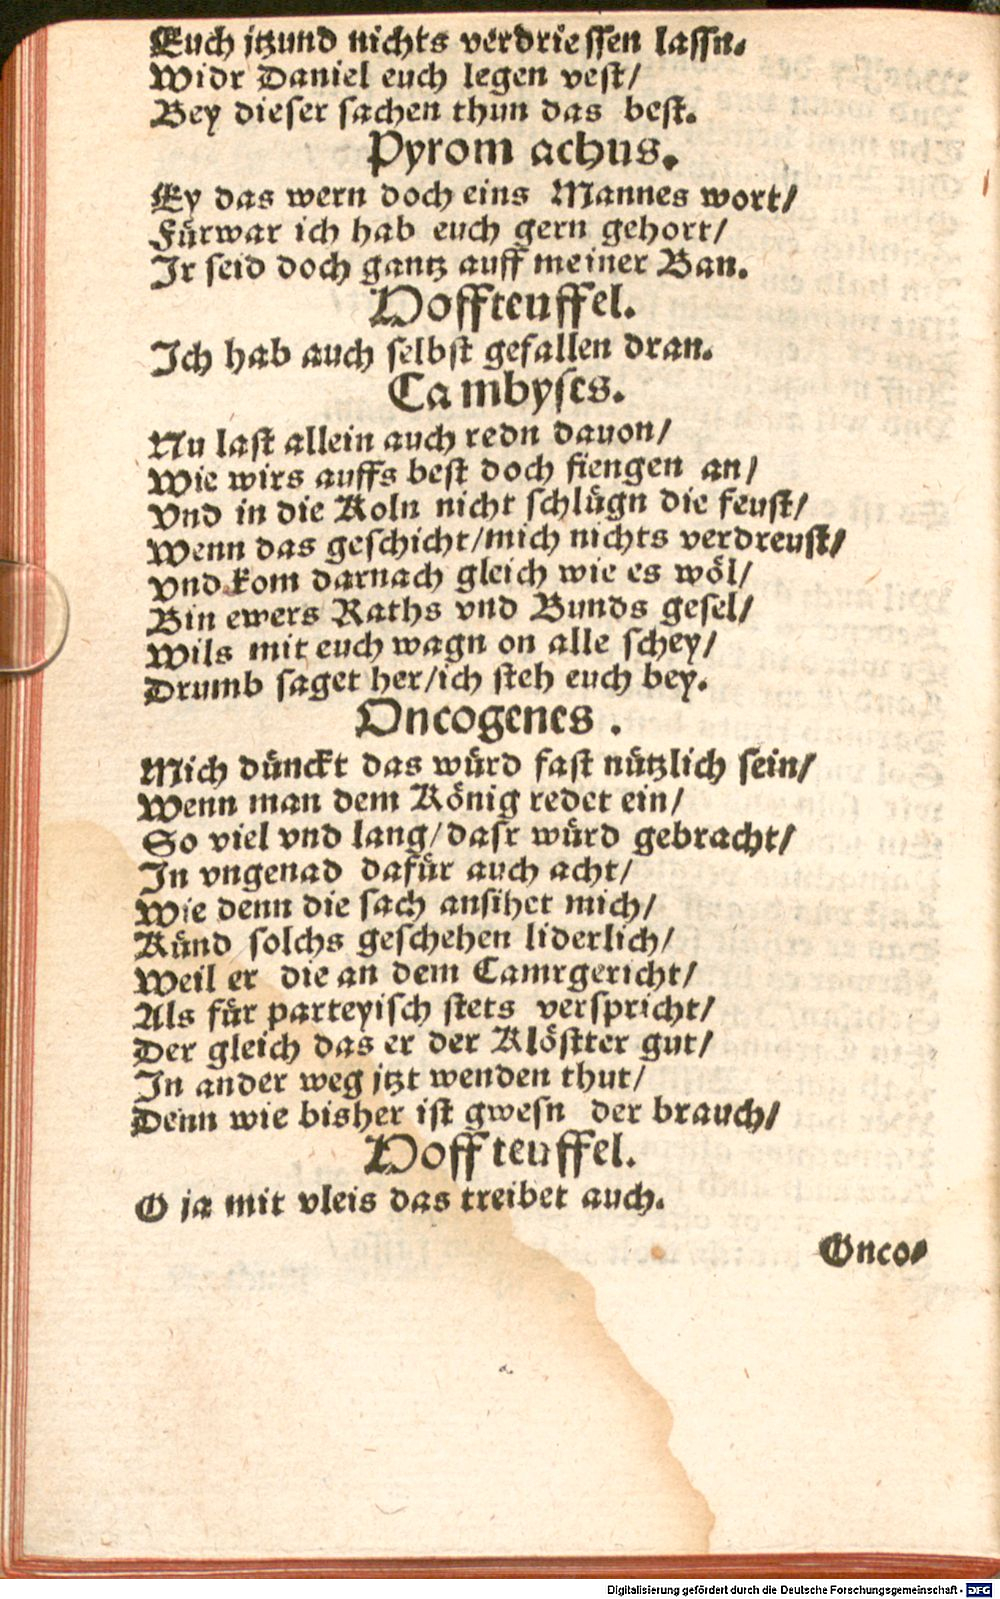 Euch jtzund nichts verdriessen lassn.
Widr Daniel euch legen vest/
Bey dieser sachen thun das best.
Pyrom achus.
Ey das wern doch eins Mannes wort/
Fürwar ich hab euch gern gehort/
Ir seid doch gantz auff meiner Ban.
Hoffteuffel.
Ich hab auch selbst gefallen dran.
Cambyses.
Nu last allein auch redn dauon/
Wie wirs auffs best doch fiengen an/
Vnd in die Koln nicht schlügn die feust/
Wenn das geschicht/mich nichts verdreust/
Vnd kom darnach gleich wie es wöl/
Bin ewers Raths vnd Bunds gesel/
Wils mit euch wagn on alle schey/
Drumb saget her/ich steh euch bey.
Oncogenes.
Mich dünckt das würd fast nützlich sein/
Wenn man dem König redet ein/
So viel vnd lang/dasr würd gebracht/
In vngenad dafür auch acht/
Wie denn die sach ansihet mich/
Künd solchs geschehen liderlich/
Weil er die an dem Camrgericht/
Als für parteyisch stets verspricht/
Der gleich das er der Klöstter gut/
In ander weg jtzt wenden thut/
Denn wie bisher ist gwesn der brauch/
Hoffteuffel.
O ja mit vleis das treibet auch.
Onco⸗
Digitalisierung gefördert durch die Deutsche Forschungsgemeinschaft - DFG